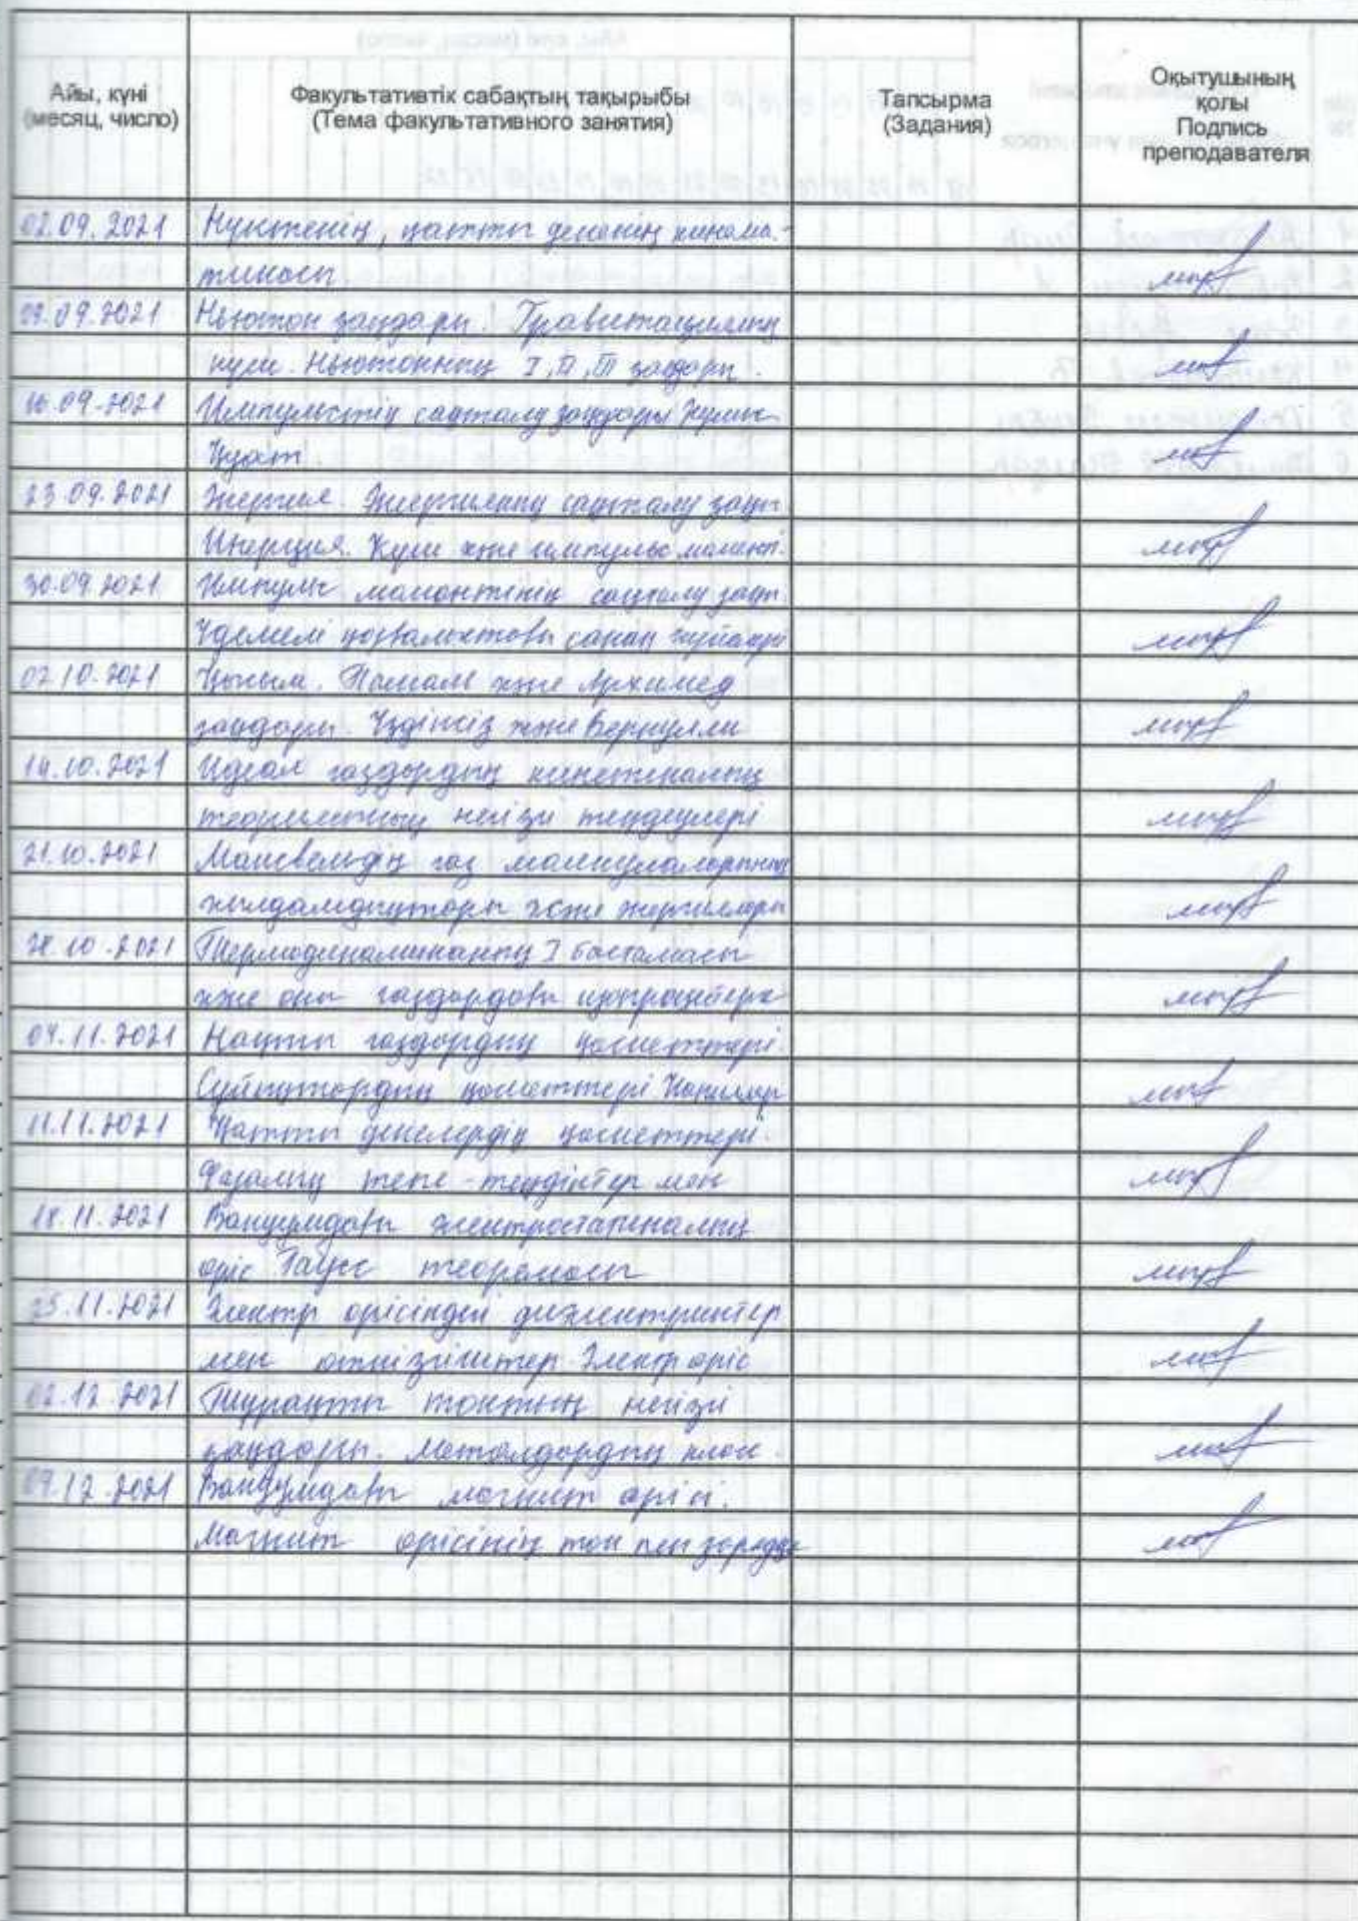 Айы, күні
(месяц, число)
Факультативтік сабақтың тақырыбы
(Тема факультативного занятия)
Тапсырма
(Задания)
Оқытушының
қолы
Подпись
преподавателя
02.09.2021 Нүктенің, қатты дененің кинема-
тикасы.
09.09.2021 Ньютон заңдары. Гравитацияның
күші. Ньютонның I, II, III заңдары.
16.09.2021 Импульстің сақталу заңдары Жұмыс
Қуат
23.09.2021 Энергия. Энергияның сақталу заңы
Инерция. Күш және импульс моменті.
30.09.2021 Импульс моментінің сақталу заңы.
Үдемелі қозғалыстағы санақ жүйелері
07.10.2021 Қысым. Паскаль және Архимед
заңдары. Үздіксіз және Бернулли
14.10.2021 Идеал газдардың кинетикалық
теориясының негізгі теңдеулері
21.10.2021 Максвелдің газ молекулаларының
жылдамдықтары және энергиялары
28.10.2021 Термодинамиканың I бастамасы
және оны газдардағы изопроцестерге
04.11.2021 Нақты газдардың қасиеттері.
Сұйықтардың қасиеттері Капилляр
11.11.2021 Қатты денелердің қасиеттері.
Фазалық тепе-теңдіктер мен
18.11.2021 Вакуумдағы электростатикалық
өріс Гаусс теоремасы
25.11.2021 Электр өрісіндегі диэлектриктер
мен өткізгіштер. Электр өріс
02.12.2021 Тұрақты токтың негізгі
заңдары. Металдардың клас.
09.12.2021 Вакуумдағы магнит өрісі.
Магнит өрісінің ток пен зарядқа